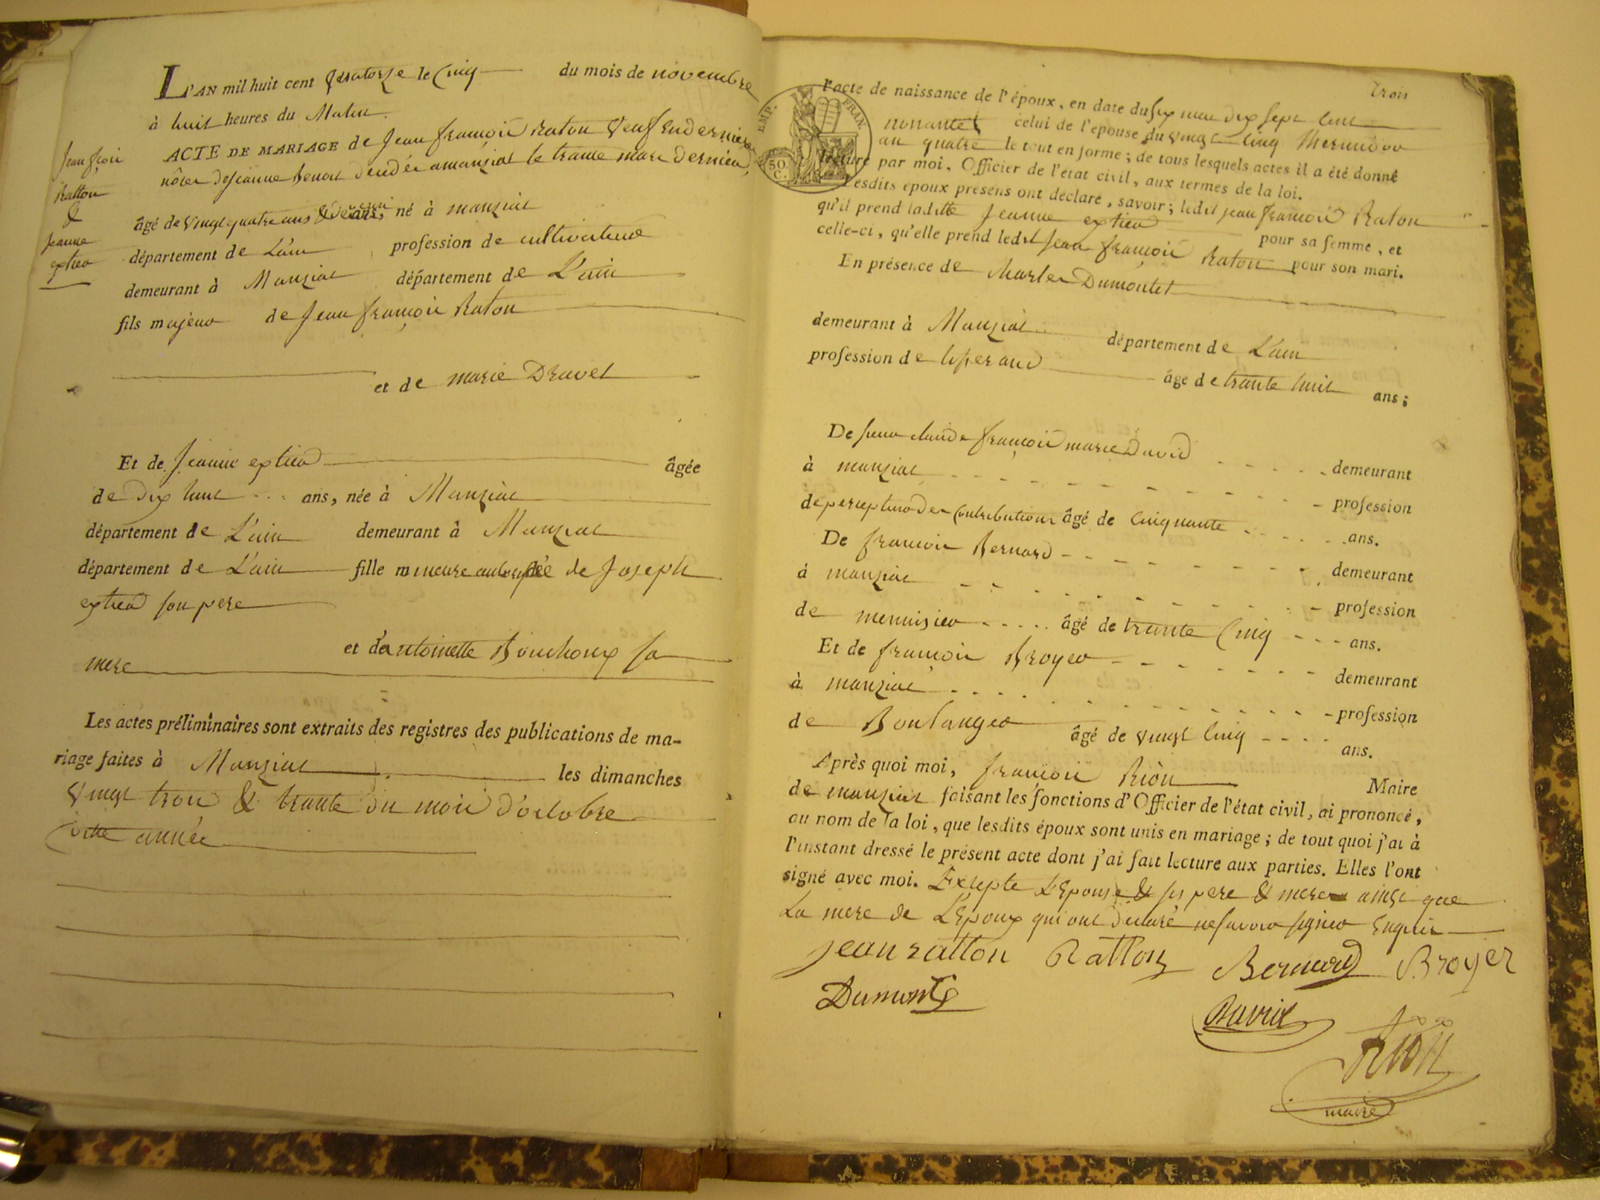 L'AN mil huit cent quatorze le Cinq du mois de novembre
à huit heures du Matin
ACTE DE MARIAGE de Jean françois Raton veuf En dernière
nôces de jeanne benoit décédée a manziat le trante mars dernier,
Jean frçois
Ratton
&
jeanne
extier
âgé de vingt quatre ans né à manziat
département de L'ain profession de cultivateur
demeurant à Manziat département de L'ain
fils majeur de Jean françois Raton
et de marie Dravet
Et de Jeanne extier âgée
de dix huit ans, née à Manziat
département de L'ain demeurant à Manziat
département de L'ain fille mineure autorisée de Joseph
extier son pere
et d'antoinette Bouchoux sa
mere
Les actes préliminaires sont extraits des registres des publications de ma-
riage faites à Manziat les dimanches
vingt trois & trante du mois d'octobre
cette année
trois
EMP. FRAN.
50.
C.
l'acte de naissance de l'époux, en date du six mai dix sept cent
nonante celui de l'épouse du vingt Cinq Mermidor
an quatre le tout en forme; de tous lesquels actes il a été donné
lecture par moi, Officier de l'état civil, aux termes de la loi.
Lesdits époux présens ont déclaré, savoir; ledit jean françois Raton
qu'il prend ladite Jeanne extier pour sa femme, et
celle-ci, qu'elle prend ledit Jean françois Raton pour son mari.
En présence de Dumontet
demeurant à Manziat département de L'ain
profession de âgé de trante huit ans;
De sieur claude françois marie David demeurant
à manziat profession
de percepteur des Contributions âgé de Cinquante ans.
De françois Bernard demeurant
à manziat profession
de menuisier âgé de trante Cinq ans.
Et de françois Broyer demeurant
à manziat profession
de Boulanger âgé de vingt Cinq ans.
Après quoi moi, françois Riòn Maire
de manziat faisant les fonctions d'Officier de l'état civil, ai prononcé,
au nom de la loi, que lesdits époux sont unis en mariage; de tout quoi j'ai à
l'instant dressé le présent acte dont j'ai fait lecture aux parties. Elles l'ont
signé avec moi. Exepte L'Epouse & ses pere & mere ainsi que
La mere de L'Epoux qui ont declaré ne savoir signer Enquis
jean ratton Ratton Bernard Broyer
Dumonte
David
Riòn
maire